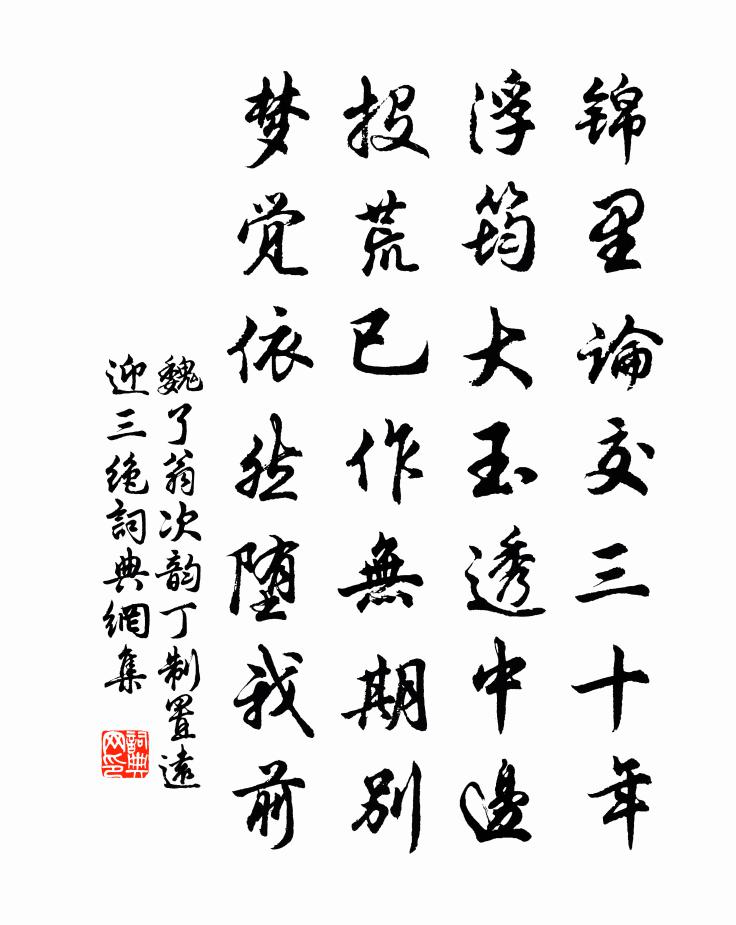 锦里論交三十年
浮筠大玉透中邊
投荒已作無期别
梦觉依然堕我前
魏了翁次韵丁制置遠
迎三绝詞典網集
詞典
网印